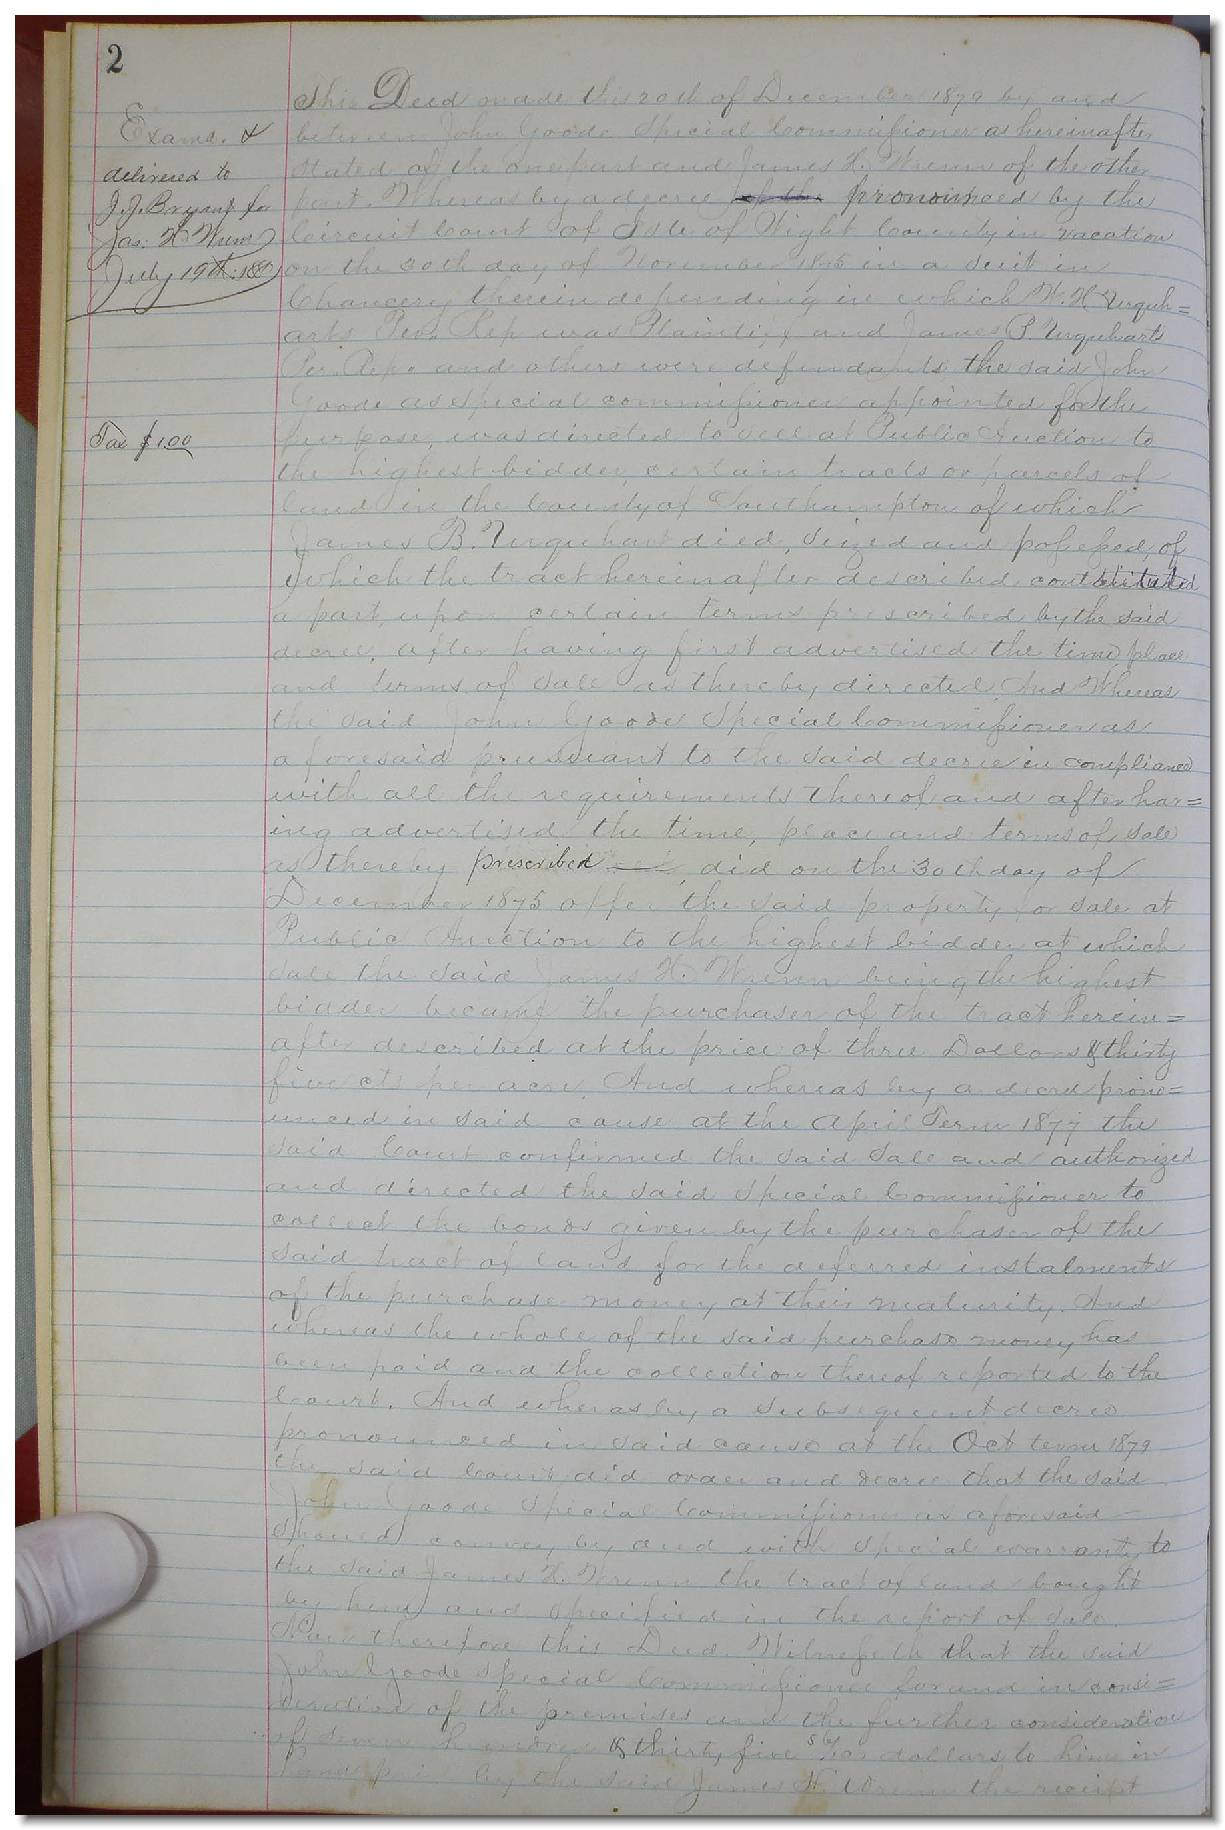 2
This Deed made this 20th of December 1879 by and
between John Goode Special Commissioner as hereinafter
stated of the one part and James H. Wrenn of the other
part. Whereas by a decree pronounced by the
Circuit Court of Isle of Wight County in vacation
on the 30th day of November 1875 in a Suit in
Chancery therein depending in which H. Urquh=
arts Per. Rep was Plaintiff and James B. Urquharts
Per. Reps and others were defendants the said John
Goode as Special commissioner appointed for the
purpose, was directed to sell at Public Auction to
the highest bidder, certain tracts or parcels of
land in the County of Southampton of which
James B. Urquhart died, seized and possessed, of
which the tract hereinafter described constituted
a part, upon certain terms prescribed by the said
decree, after having first advertised the time place
and terms of sale as thereby directed. And Whereas
the said John Goode Special Commissioner as
aforesaid pursuant to the said decree in compliance
with all the requirements thereof and after hav=
ing advertised the time, place and terms of sale
as thereby prescribed did on the 30th day of
December 1875 offer the said property for sale at
Public Auction to the highest bidder at which
sale the said James H. Wrenn being the highest
bidder became the purchaser of the tract herein=
after described at the price of three Dollars & thirty
five cts per acre. And whereas by a decree prono=
unced in said cause at the April Term 1877 the
said Court confirmed the said Sale and authorized
and directed the said Special Commissioner to
collect the bonds given by the purchaser of the
said tract of land for the deferred instalments
of the purchase money at their maturity. And
whereas the whole of the said purchase money has
been paid and the collection thereof reported to the
Court. And whereas by a subsequent decree
pronounced in said cause at the Oct term 1879
the said Court did order and decree that the said
John Goode Special Commissioner as aforesaid
should convey by deed with special warranty to
the said James H. Wrenn the tract of land bought
by him and specified in the report of sale.
Now therefore this Deed Witnesseth that the said
John Goode special Commissioner for and in consi=
deration of the premises and the further consideration
of seven hundred & thirty five dollars to him in
hand paid by the said James H. Wrenn the receipt
Examd. &
delivered to
J.J. Bryant for
Jas. H Wrenn
July 19th
Tax $1.00